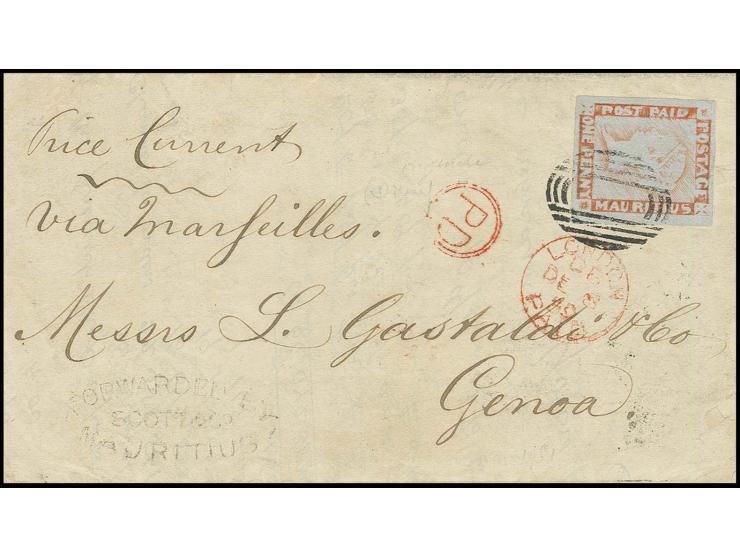 Price Current
via Marseilles.
Messrs L. Gastaldi & Co
Genoa
POST PAID
ONE PENNY
POSTAGE
MAURITIUS
PD
LONDON
DE
PAID
FORWARDED BY
SCOTT & Co
MAURITIUS